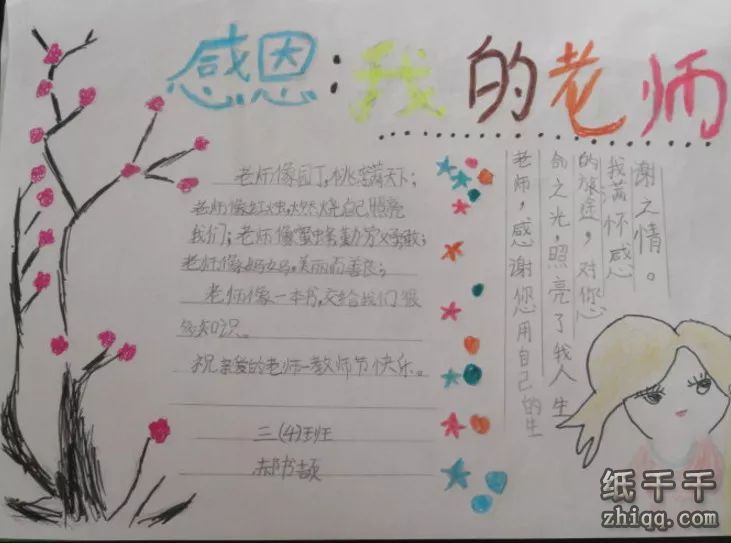 感恩:我的老师
老师像园丁,桃李满天下;
老师像红烛,燃烧自己照亮
我们;老师像蜜蜂勤劳又勇敢;
老师像妈妈,美丽而善良;
老师像一本书,交给我们很
多知识。
祝亲爱的老师—教师节快乐。
三(4)班
郝书
老师,感谢您用自己的生
命之光,照亮了我人生
的旅途,对您
我满怀感
谢之情。
纸千千
zhiqq.com